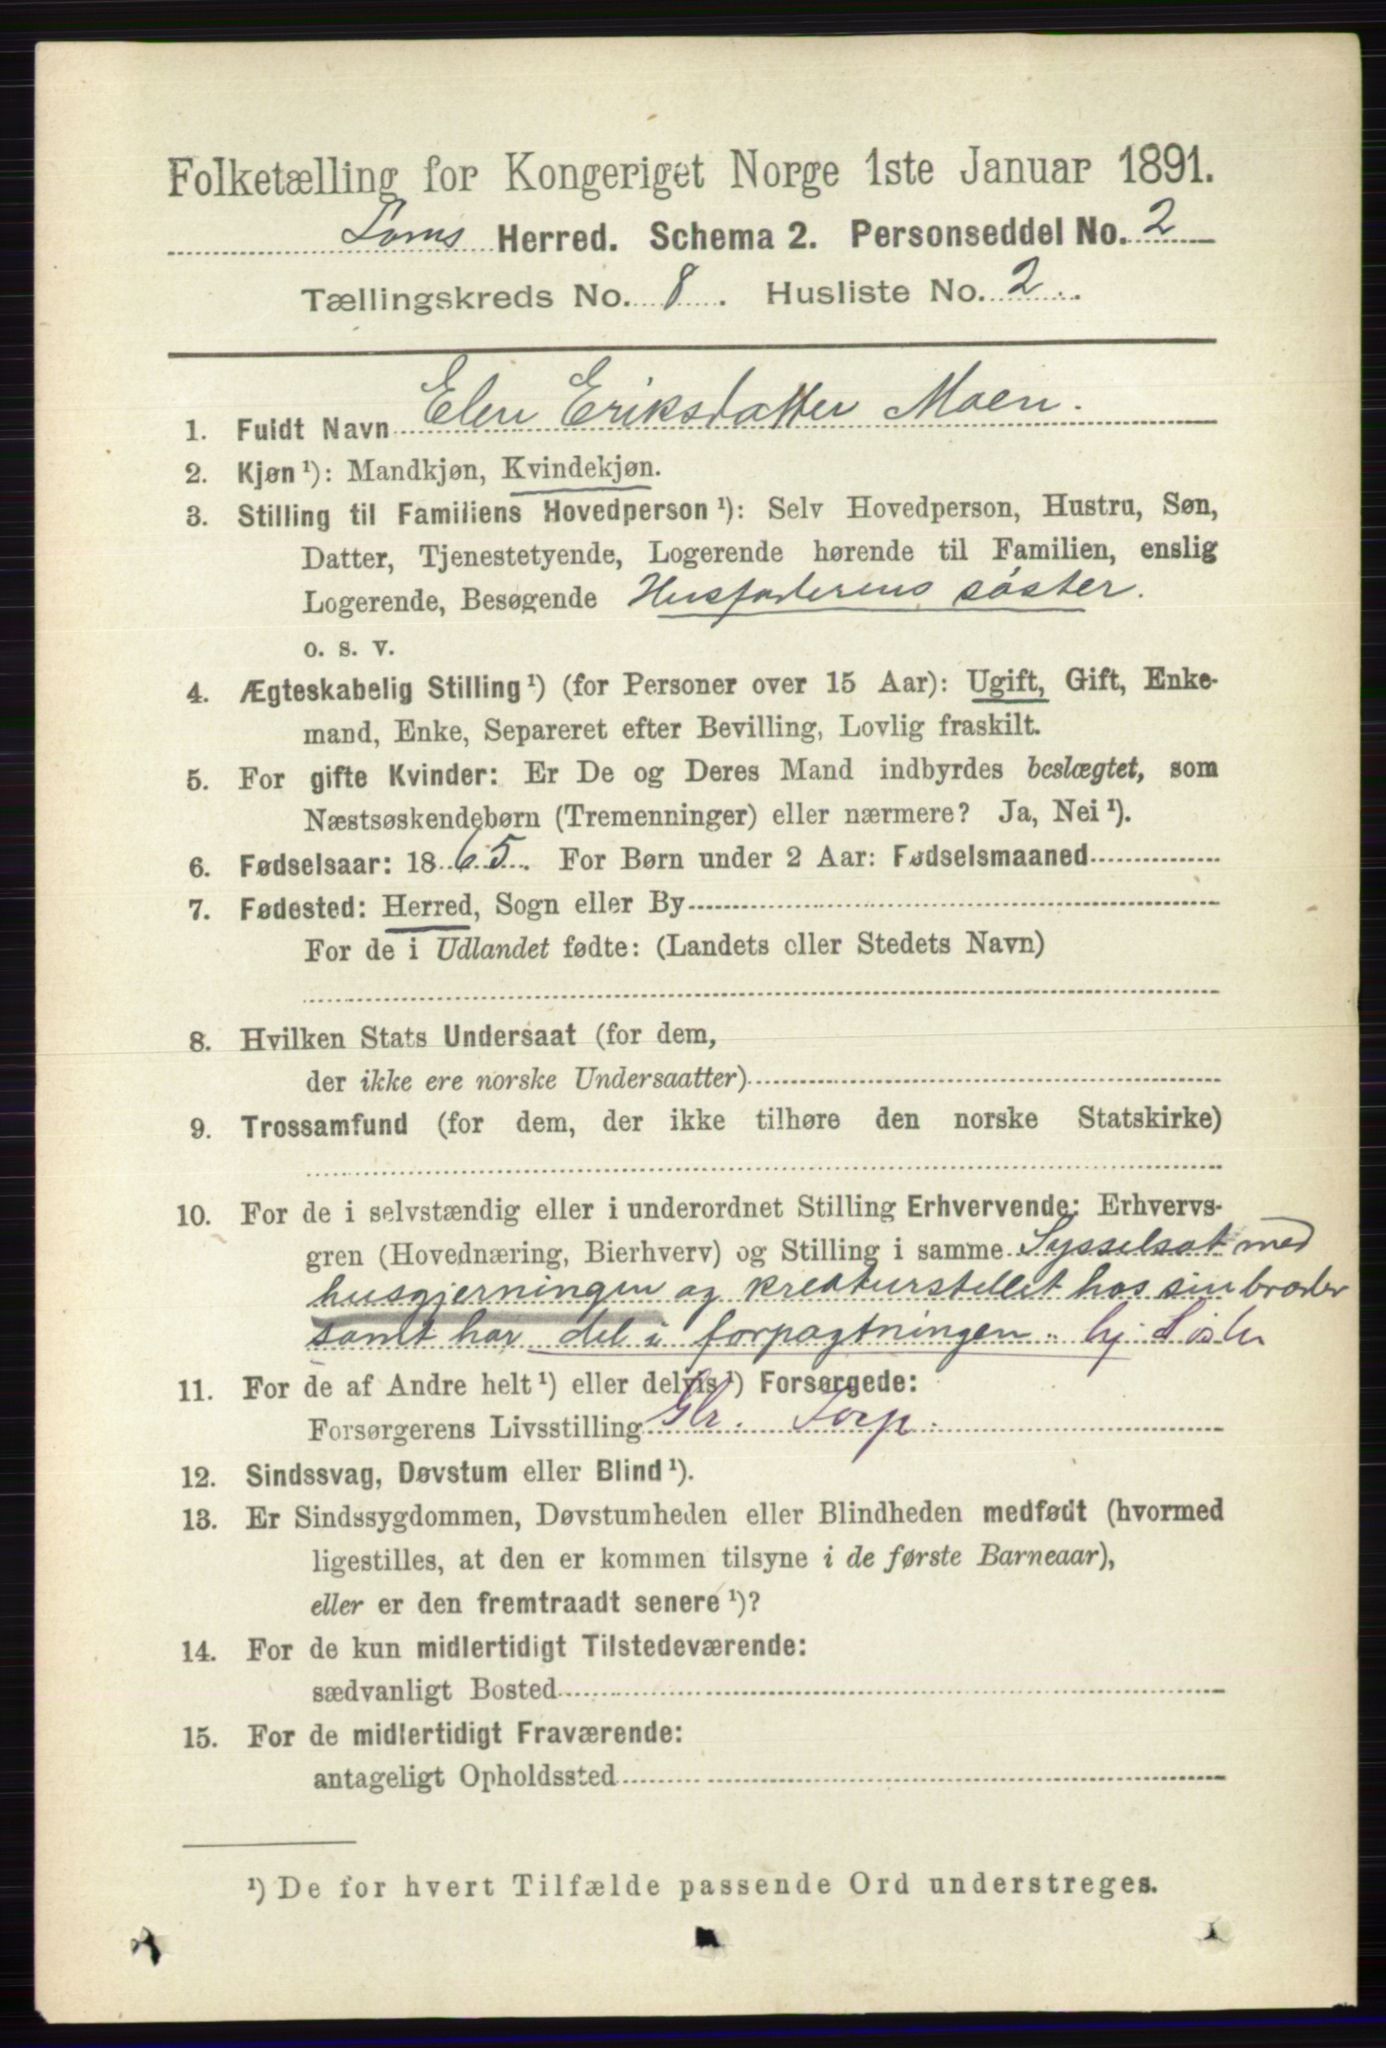 Folketælling for Kongeriget Norge 1ste Januar 1891.
Loms Herred. Schema 2. Personseddel No. 2
Tællingskreds No. 8. Husliste No. 2.
1. Fuldt Navn Elen Eriksdatter Moen.
2. Kjøn¹): Mandkjøn, Kvindekjøn.
3. Stilling til Familiens Hovedperson¹): Selv Hovedperson, Hustru, Søn,
Datter, Tjenestetyende, Logerende hørende til Familien, enslig
Logerende, Besøgende Husfaderens søster.
o. s. v.
4. Ægteskabelig Stilling¹) (for Personer over 15 Aar): Ugift, Gift, Enke-
mand, Enke, Separeret efter Bevilling, Lovlig fraskilt.
5. For gifte Kvinder: Er De og Deres Mand indbyrdes beslægtet, som
Næstsøskendebørn (Tremenninger) eller nærmere? Ja, Nei¹).
6. Fødselsaar: 1865. For Børn under 2 Aar: Fødselsmaaned
7. Fødested: Herred, Sogn eller By
For de i Udlandet fødte: (Landets eller Stedets Navn)
8. Hvilken Stats Undersaat (for dem,
der ikke ere norske Undersaatter)
9. Trossamfund (for dem, der ikke tilhøre den norske Statskirke)
10. For de i selvstændig eller i underordnet Stilling Erhvervende: Erhvervs-
gren (Hovednæring, Bierhverv) og Stilling i samme Sysselsat med
husgjerningen og kreaturstellet hos sin broder
samt har del i forpagtningen. hj. Søster
11. For de af Andre helt¹) eller delvis¹) Forsørgede:
Forsørgerens Livsstilling Gbr. Forp.
12. Sindssvag, Døvstum eller Blind¹).
13. Er Sindssygdommen, Døvstumheden eller Blindheden medfødt (hvormed
ligestilles, at den er kommen tilsyne i de første Barneaar),
eller er den fremtraadt senere¹)?
14. For de kun midlertidigt Tilstedeværende:
sædvanligt Bosted
15. For de midlertidigt Fraværende:
antageligt Opholdssted
¹) De for hvert Tilfælde passende Ord understreges.